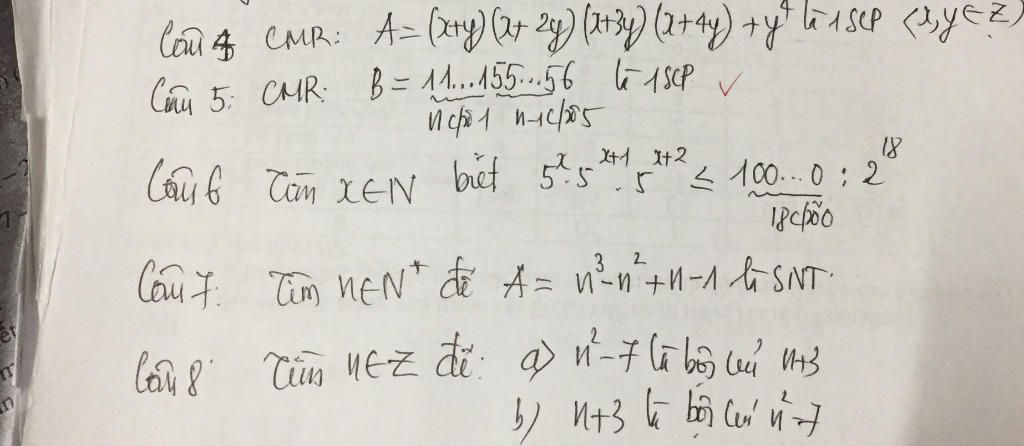 Câu 4 CMR: A = (x+y)(x+2y)(x+3y)(x+4y) + y⁴ là 1 SCP (x,y ∈ Z)
Câu 5: CMR: B = 11...155...56 là 1 SCP ✓
n c/số 1 n-1 c/số 5
Câu 6 Tìm x∈N biết 5ˣ.5ˣ⁺¹.5ˣ⁺² ≤ 100...0 : 2¹⁸
18 c/số 0
Câu 7: Tìm n∈N* để A = n³-n²+n-1 là SNT.
Câu 8 Tìm n∈Z để: a) n²-7 là bội của n+3
b) n+3 là bội của n²-7